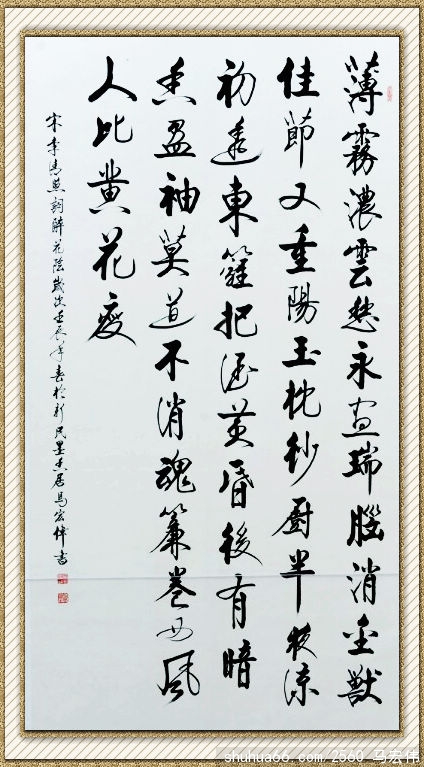 薄霧濃雲愁永晝瑞腦消金獸
佳節又重陽玉枕紗廚半夜涼
初透東籬把酒黃昏後有暗
香盈袖莫道不消魂簾卷西風
人比黃花瘦
宋李清照詞醉花陰歲次壬辰年春於新民墨香居馬宏偉書
shuhua66.com/2560 马宏伟